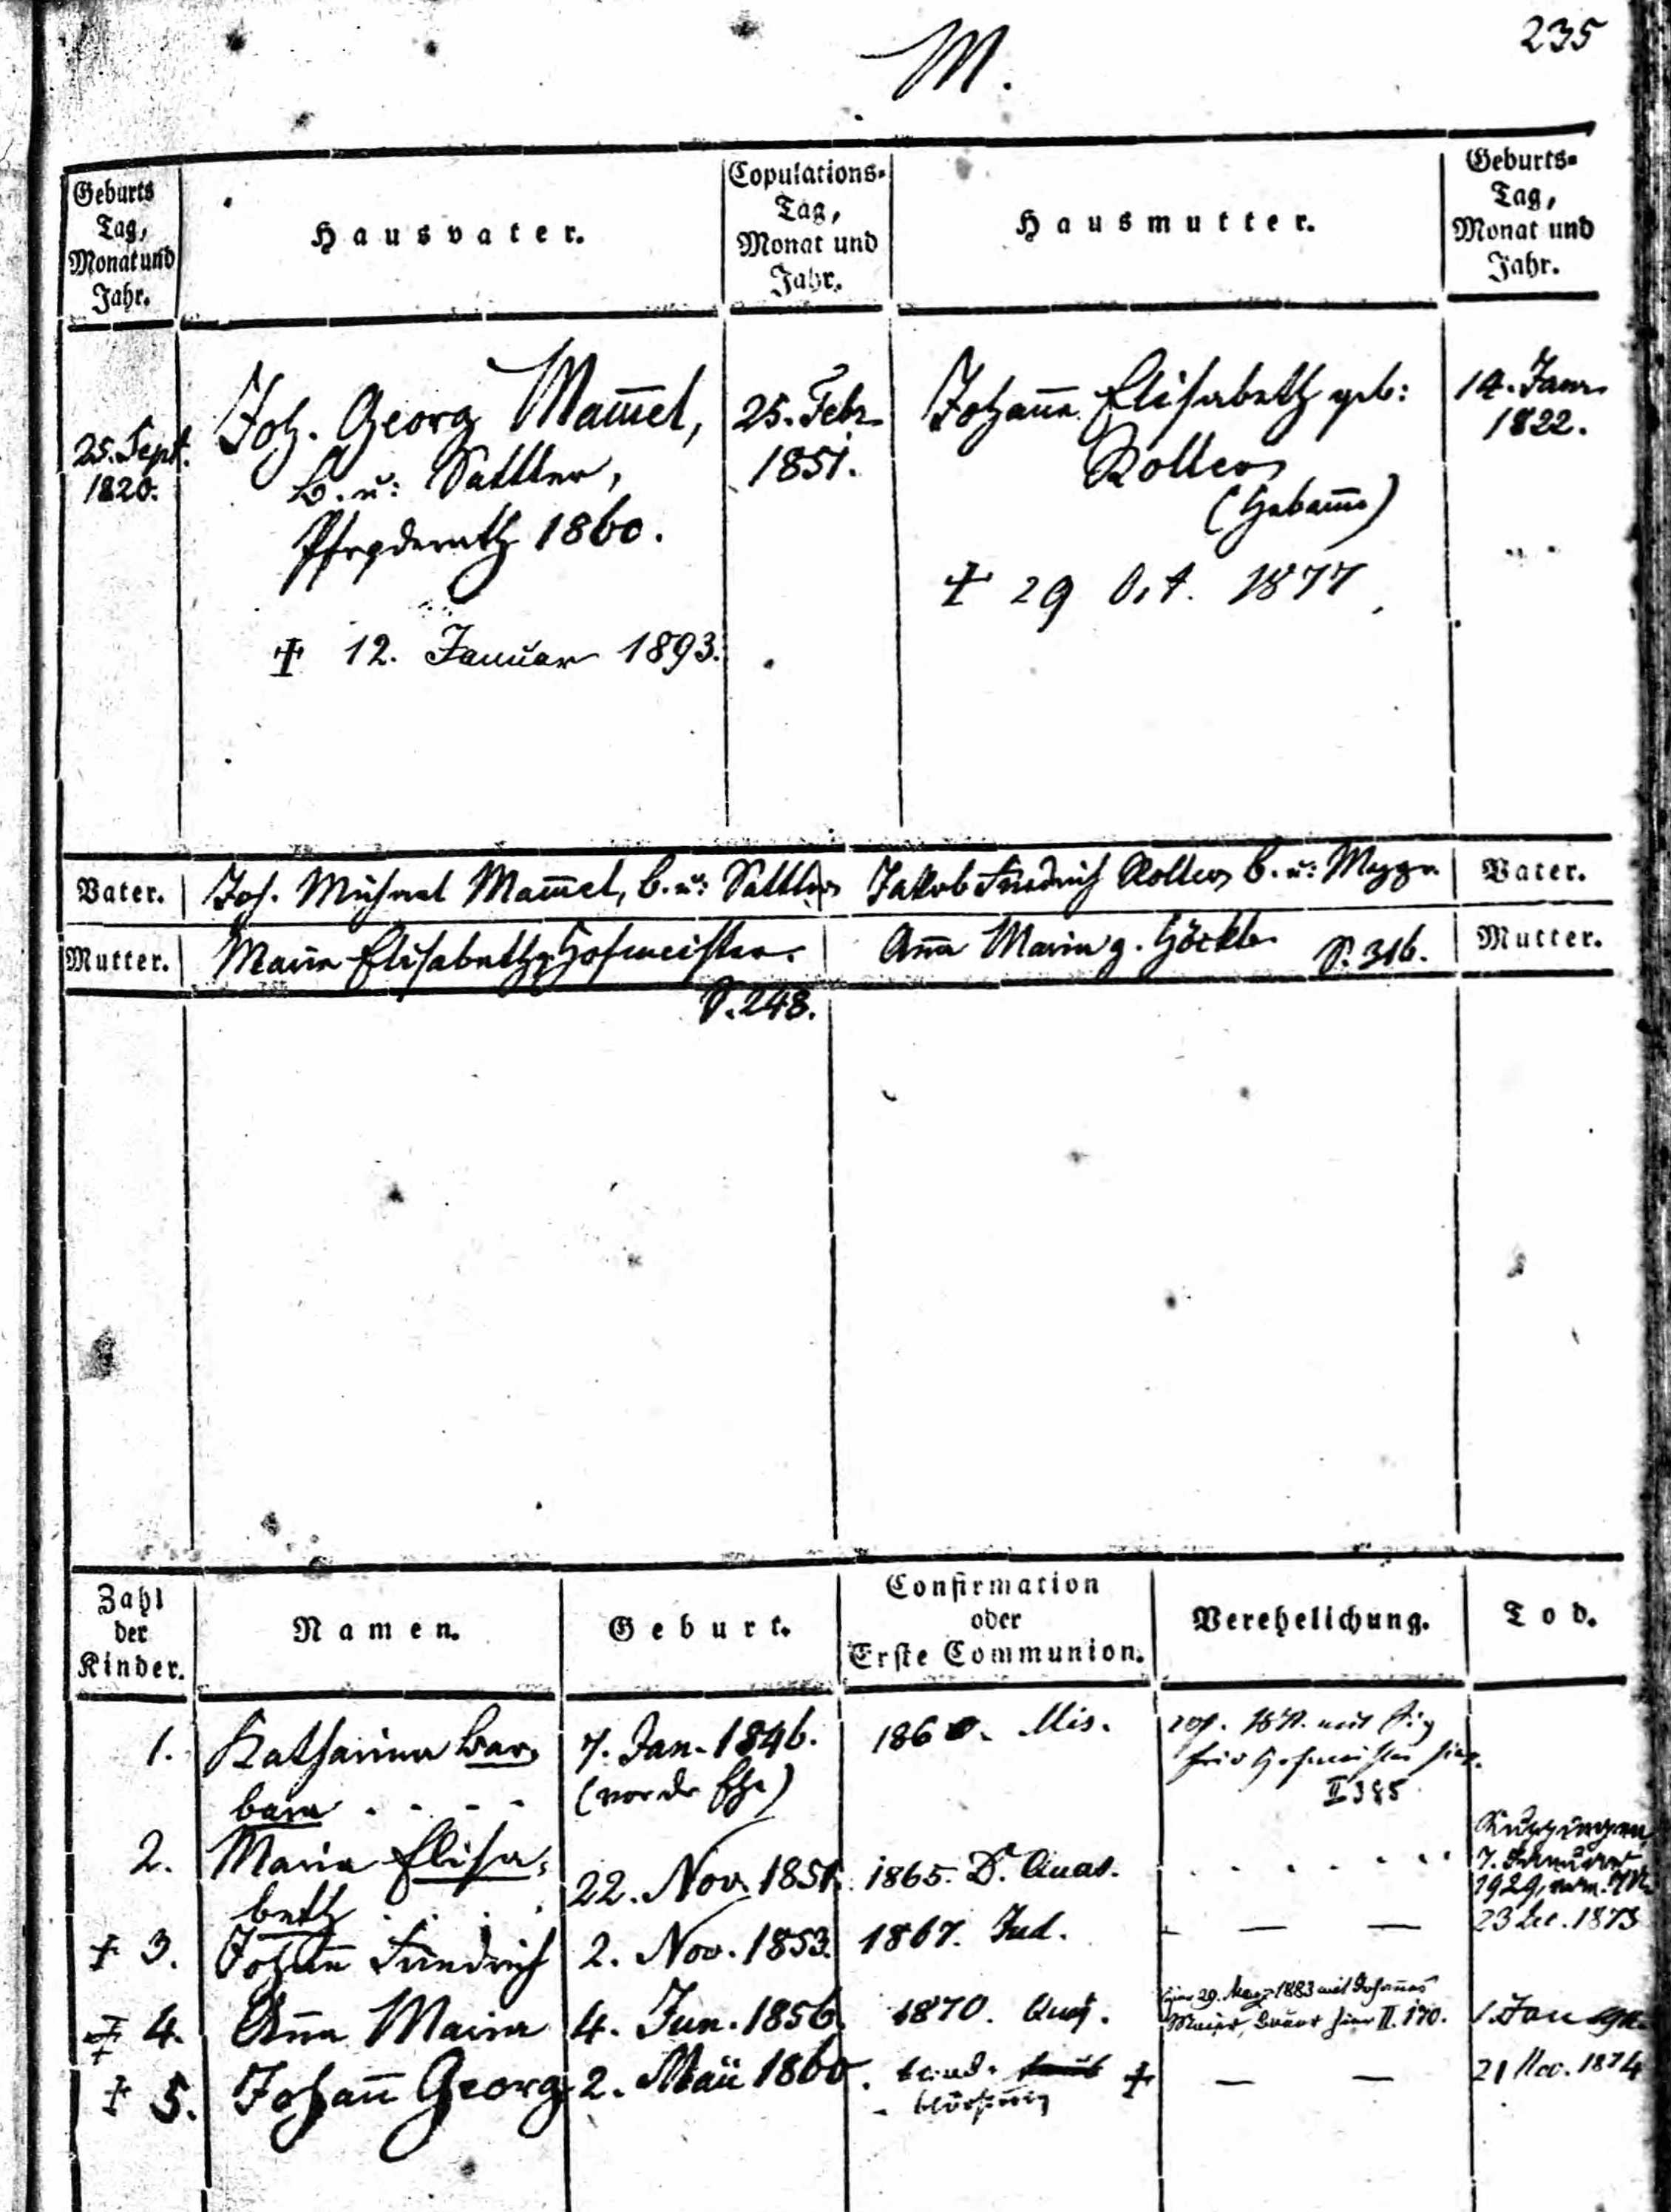 M.
235
Geburts
Tag,
Monat und
Jahr.
Hausvater.
Copulations-
Tag,
Monat und
Jahr.
Hausmutter.
Geburts-
Tag,
Monat und
Jahr.
25. Sept.
1820.
Joh. Georg Mam̅el,
B. u: Sattler,
1860.
+ 12. Januar 1893.
25. Febr.
1851.
Johan̅e Elisabeth geb:
Roller
(Hebam̅e)
+ 29 Oct. 1877
14. Jan.
1822.
Vater.
Joh. Michael Mam̅el, B. u: Sattler
Jakob Friedrich Roller B. u: Mezgr.
Vater.
Mutter.
Maria Elisabeth g. Hofmeister.
S. 248.
An̅a Maria g. Göckle
S. 316.
Mutter.
Zahl
der
Kinder.
Namen.
Geburt.
Confirmation
oder
Erste Communion.
Verehelichung.
Tod.
1.
Katharina Bar-
bara
7. Jan. 1846.
(vor der Ehe)
1860. Mis.
mit
Hofmeister hier.
II 385
2.
Maria Elisa-
beth
22. Nov. 1851.
1865. D. Quas.
Kuppingen
7. Januar
1929,
+ 3.
Johan̅ Friedrich
2. Nov. 1853.
1867. Jud.
— —
23 Dec. 1873
+ 4.
An̅a Maria
4. Jun. 1856.
1870.
hier 29. März 1883 mit Johan̅es
Maier, Bauer hier II. 170.
1. Jan
+ 5.
Johan̅ Georg
2. Mai 1860.
+
— —
21 Nov. 1874